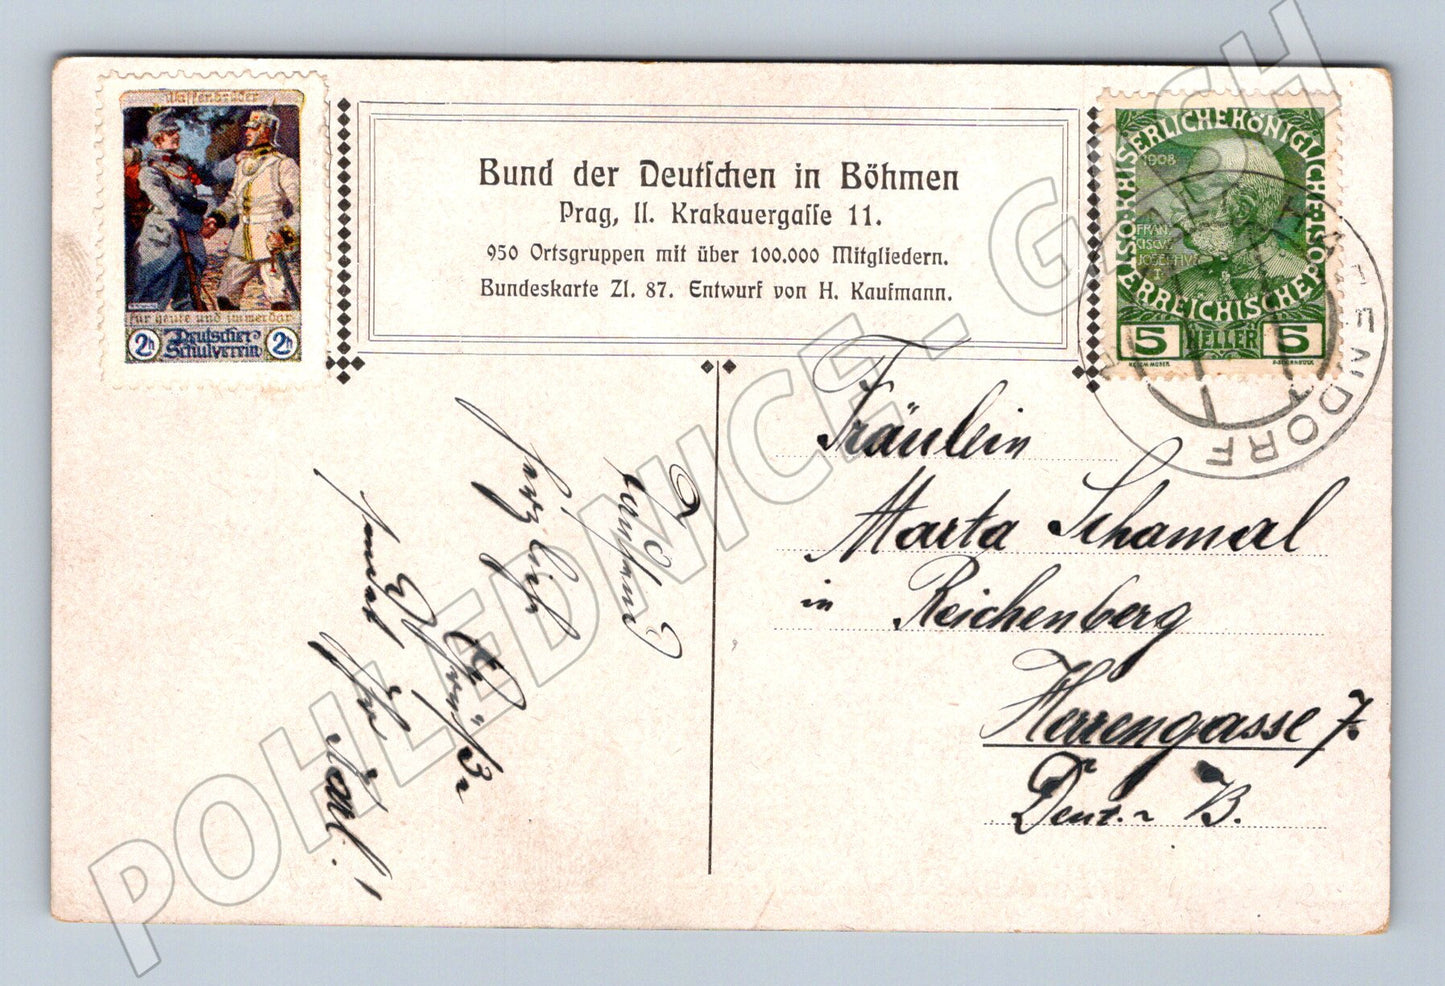 Waffenbrüder
für heute und immerdar
2h Deutscher Schulverein 2h
Bund der Deutschen in Böhmen
Prag, II. Krakauergasse 11.
950 Ortsgruppen mit über 100.000 Mitgliedern.
Bundeskarte Zl. 87. Entwurf von H. Kaufmann.
KAISERLICHE KÖNIGLICHE ÖSTERREICHISCHE POST
1908
FRAN
CISCVS
JOSEPHVS
I.
5 HELLER 5
ENDORF
Fräulein
Marta Schamal
in Reichenberg
Herrengasse 7.
Deut.- B.
Tausend
herzliche
Grüße
Ihr Karl!
POHLEDNICE - G